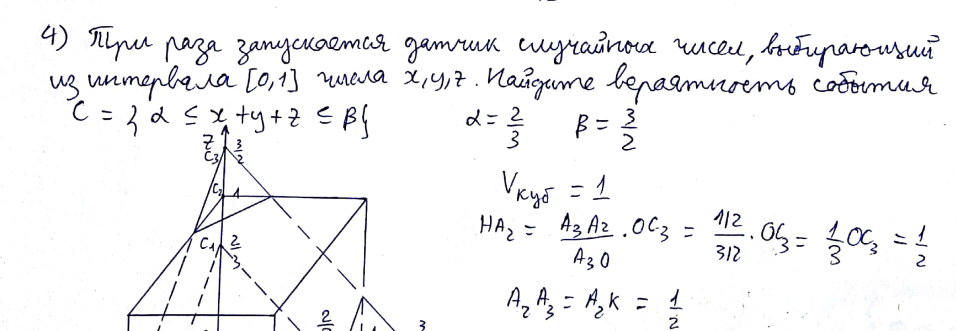 4) Три раза запускается датчик случайных чисел, выбирающий
из интервала [0,1] числа x,y,z. Найдите вероятность события
C = { α ≤ x+y+z ≤ β}   α = 2/3   β = 3/2
z
C₃ 3/2
C₂ 1
C₁ 2/3
Vкуб = 1
HA₂ = A₃A₂/A₃O · OC₃ = 1/2/3/2 · OC₃ = 1/3 OC₃ = 1/2
A₂A₃ = A₂K = 1/2